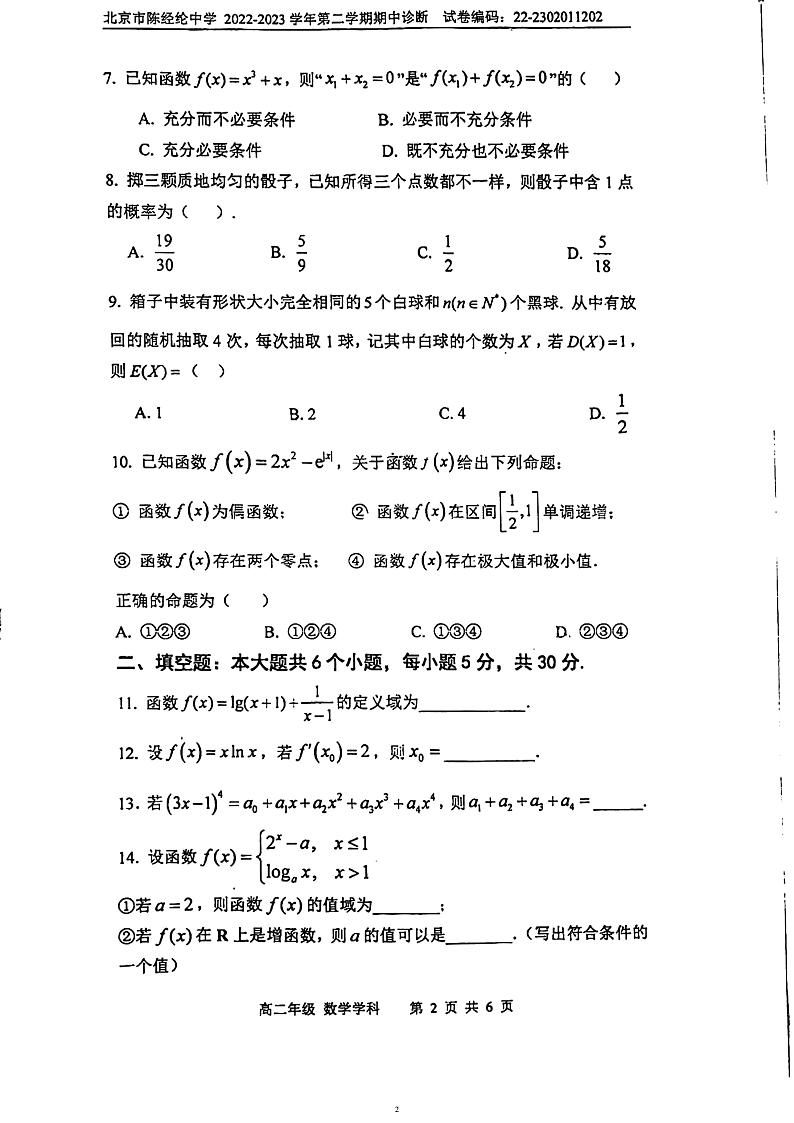 北京市陈经纶中学 2022-2023 学年第二学期期中诊断 试卷编码：22-2302011202
7. 已知函数 f(x)=x³+x，则“x₁+x₂=0”是“f(x₁)+f(x₂)=0”的（ ）
A. 充分而不必要条件 B. 必要而不充分条件
C. 充分必要条件 D. 既不充分也不必要条件
8. 掷三颗质地均匀的骰子，已知所得三个点数都不一样，则骰子中含 1 点
的概率为（ ）.
A. 19/30 B. 5/9 C. 1/2 D. 5/18
9. 箱子中装有形状大小完全相同的5个白球和n(n∈N*)个黑球. 从中有放
回的随机抽取 4 次，每次抽取 1 球，记其中白球的个数为 X，若 D(X)=1，
则 E(X)=（ ）
A. 1 B. 2 C. 4 D. 1/2
10. 已知函数 f(x)=2x²-e^|x|，关于函数 f(x) 给出下列命题：
① 函数 f(x) 为偶函数； ② 函数 f(x) 在区间[1/2,1]单调递增；
③ 函数 f(x) 存在两个零点； ④ 函数 f(x) 存在极大值和极小值.
正确的命题为（ ）
A. ①②③ B. ①②④ C. ①③④ D. ②③④
二、填空题：本大题共 6 个小题，每小题 5 分，共 30 分.
11. 函数 f(x)=lg(x+1)+1/(x-1) 的定义域为____________.
12. 设 f(x)=xlnx，若 f′(x₀)=2，则 x₀=__________.
13. 若(3x-1)⁴=a₀+a₁x+a₂x²+a₃x³+a₄x⁴，则 a₁+a₂+a₃+a₄=______.
14. 设函数 f(x)={2ˣ-a, x≤1
logₐx, x>1
①若 a=2，则函数 f(x) 的值域为________；
②若 f(x) 在 R 上是增函数，则 a 的值可以是________.（写出符合条件的
一个值）
高二年级 数学学科 第 2 页 共 6 页
2